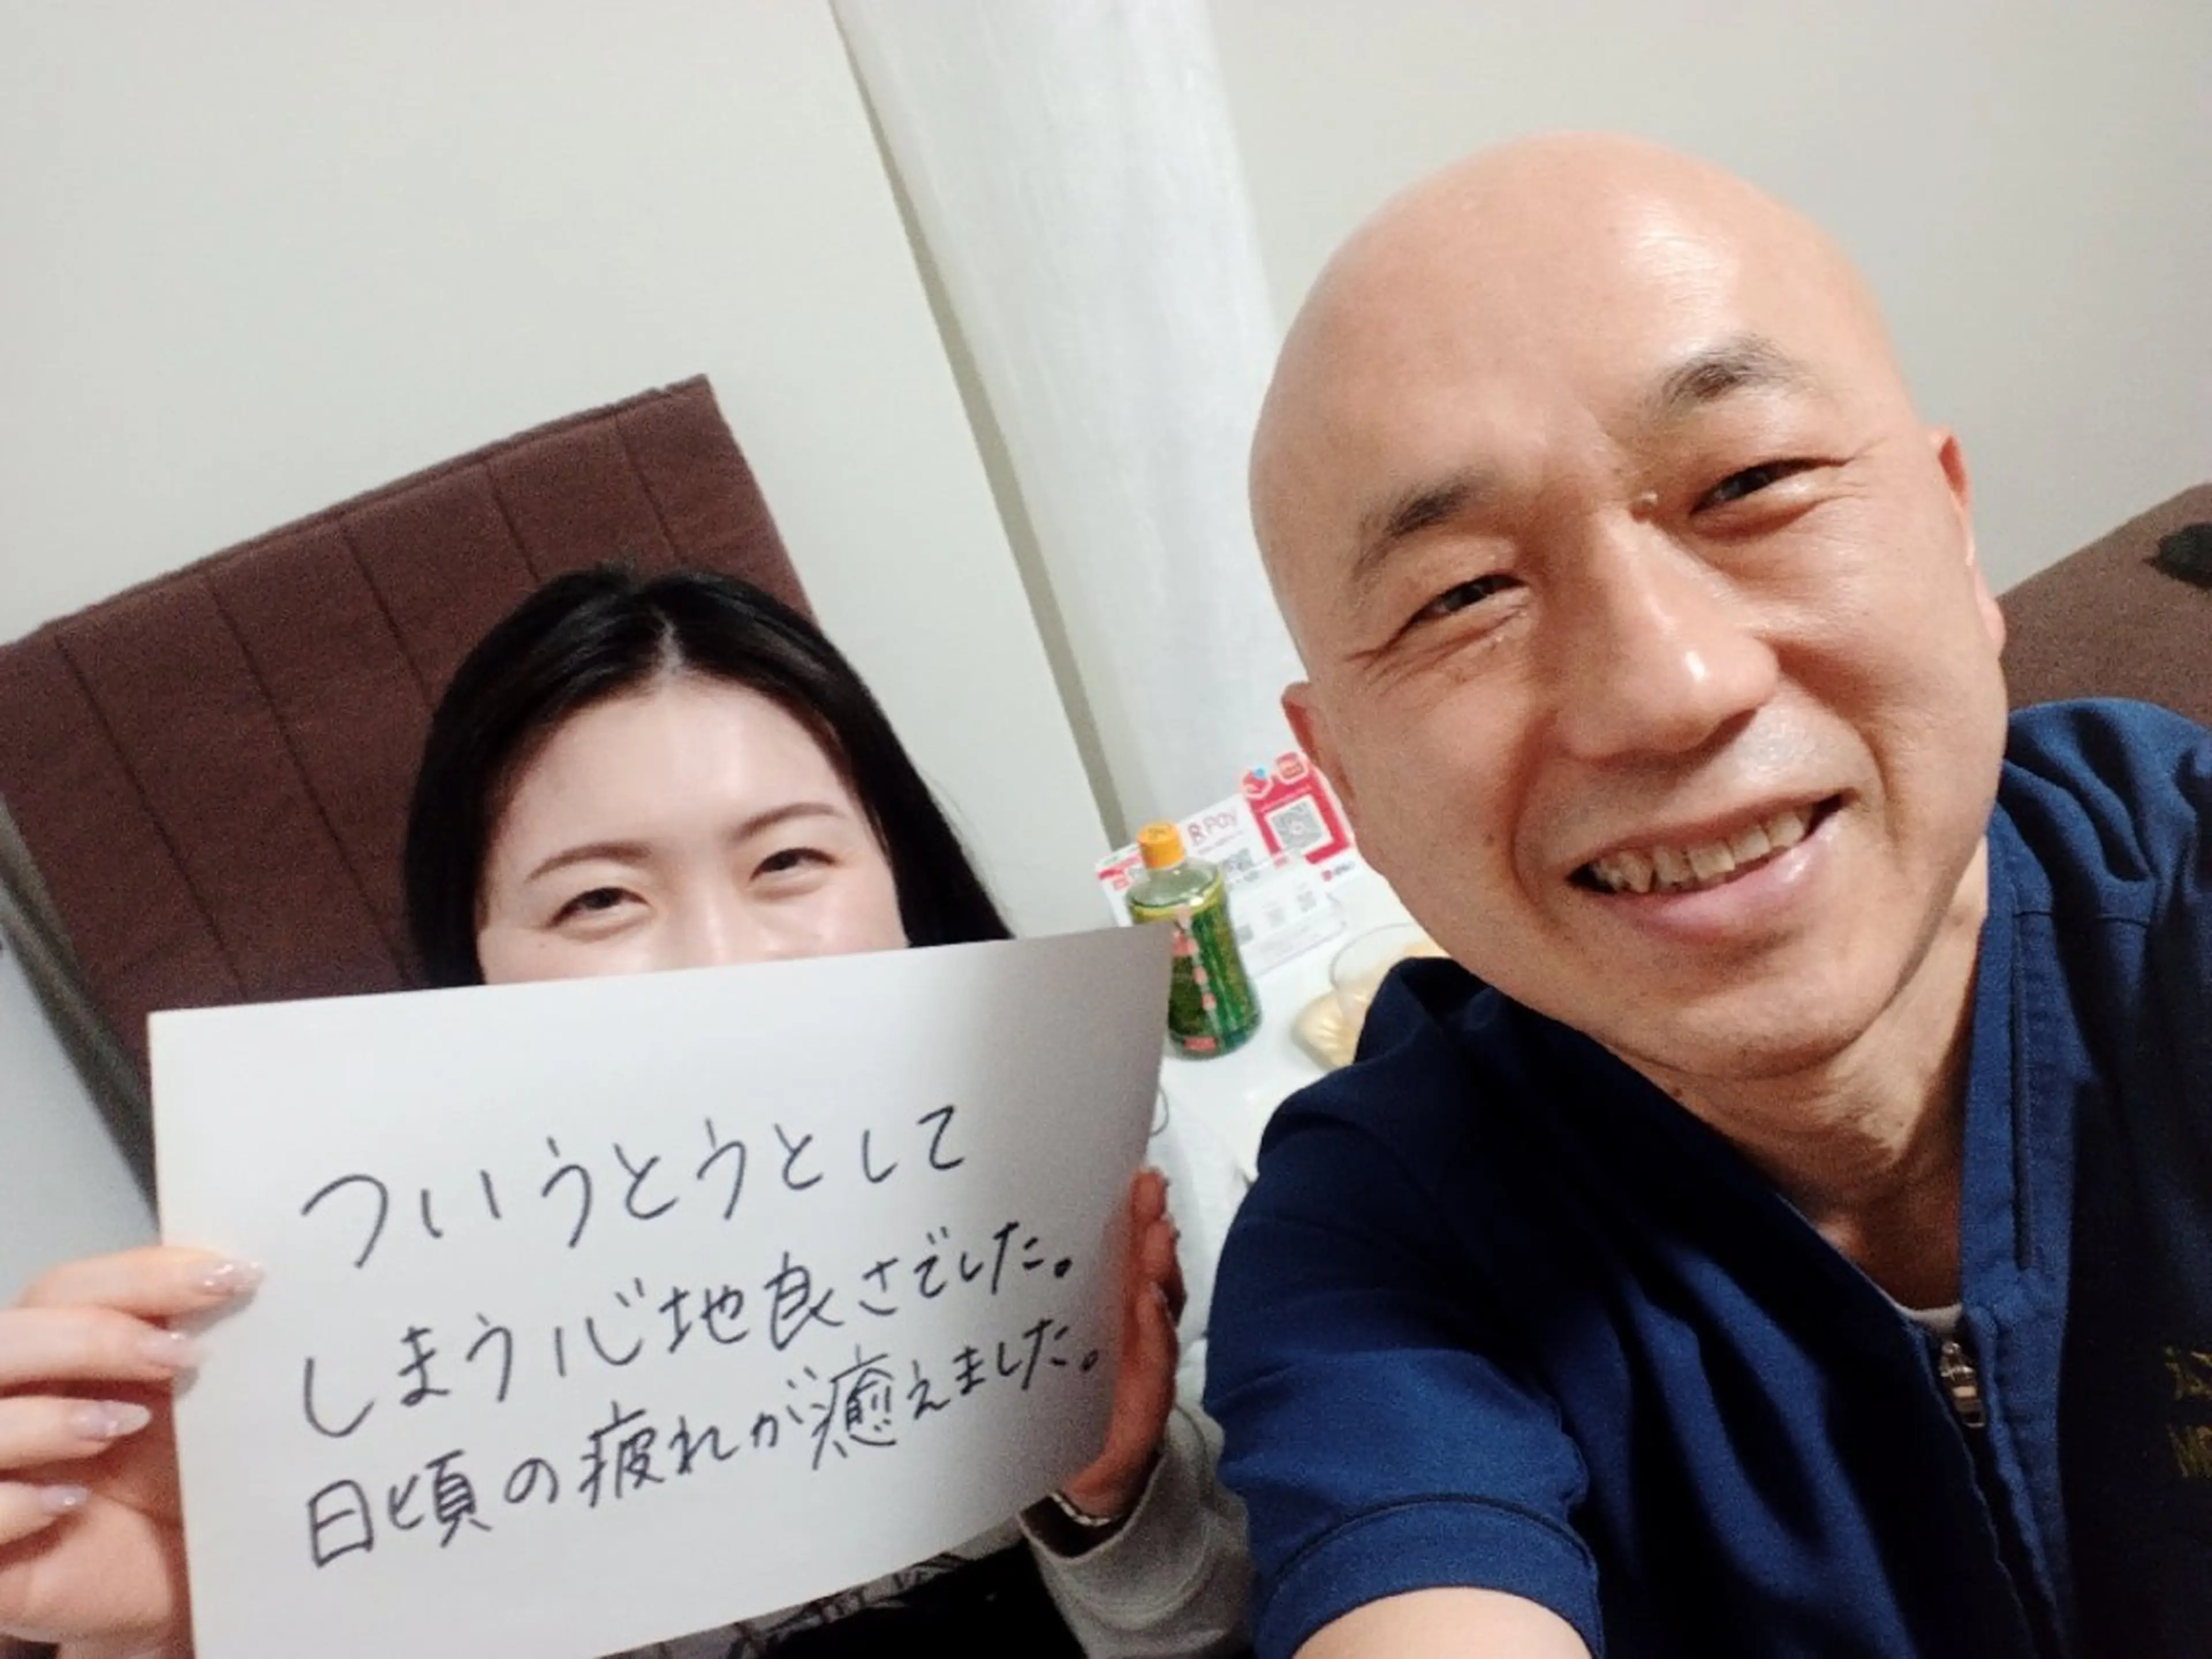 ついうとうとして
しまう心地良さでした。
日頃の疲れが癒えました。
R Pay